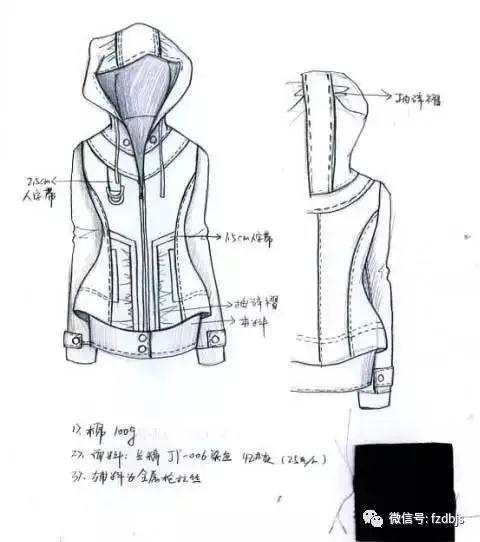 抽碎褶
2.5cm
人字带
1.5cm人字带
抽碎褶
布料
1), 棉 100g
2), 面料: 兰精 JY-006 染色 42#灰 (25元/m)
3), 辅料为金属枪拉丝
微信号: fzdbjs